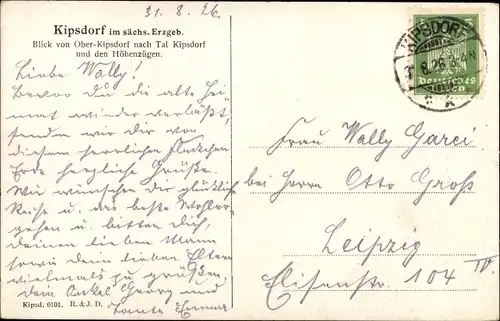 31. 8. 26.
Kipsdorf im sächs. Erzgeb.
Blick von Ober-Kipsdorf nach Tal Kipsdorf
und den Höhenzügen.
Liebe Wally!
Bevor du die alte Hei-
mat wieder verläßt,
senden wir dir von
diesem herrlichen Fleckchen
Erde herzliche Grüße.
Wir wünschen dir glückliche
Reise u. das beste Wohler-
gehen u. bitten dich,
deinen lieben Mann
sowie dein lieben Eltern
vielmals zu grüßen,
dein Onkel Georg und
tante Emma
Kipsd. 0101. R. & J. D.
KIPSDORF
8.26
Deutsches
Frau Wally Garci
bei Herrn Otto Groß
Leipzig
Elisenstr. 104 IV